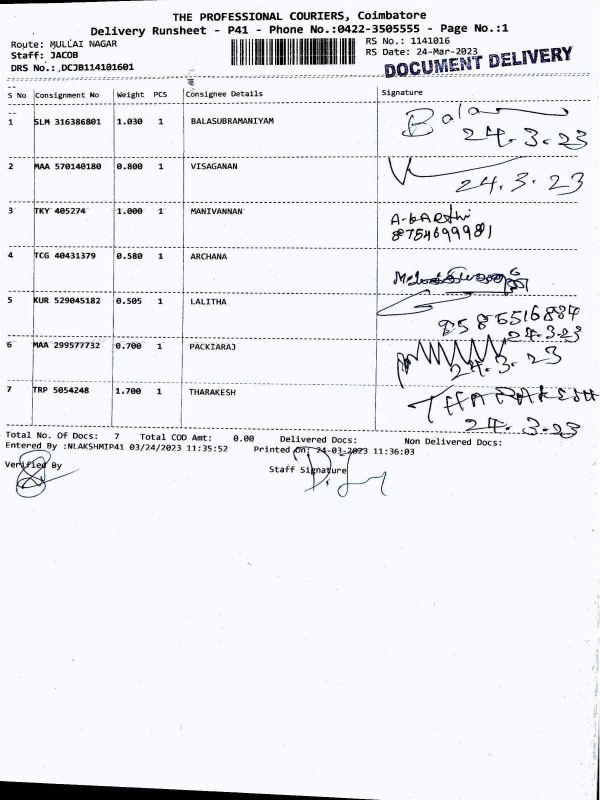 THE PROFESSIONAL COURIERS, Coimbatore
Delivery Runsheet - P41 - Phone No.:0422-3505555 - Page No.:1
Route: MULLAI NAGAR
RS No.: 1141016
Staff: JACOB
RS Date: 24-Mar-2023
DRS No.: DCJB114101601
DOCUMENT DELIVERY
S No Consignment No Weight PCS Consignee Details Signature
1 SLM 316386801 1.030 1 BALASUBRAMANIYAM Bala
24.3.23
2 MAA 570140180 0.800 1 VISAGANAN
24.3.23
3 TKY 405274 1.000 1 MANIVANNAN A.KARthi
8754699981
4 TCG 40431379 0.580 1 ARCHANA
5 KUR 529045182 0.505 1 LALITHA
24.3.23
6 MAA 299577732 0.700 1 PACKIARAJ
24.3.23
7 TRP 5054248 1.700 1 THARAKESH THARAKESH
24.3.23
Total No. Of Docs: 7 Total COD Amt: 0.00 Delivered Docs: Non Delivered Docs:
Entered By :NLAKSHMIP41 03/24/2023 11:35:52 Printed On: 24-03-2023 11:36:03
Verified By Staff Signature